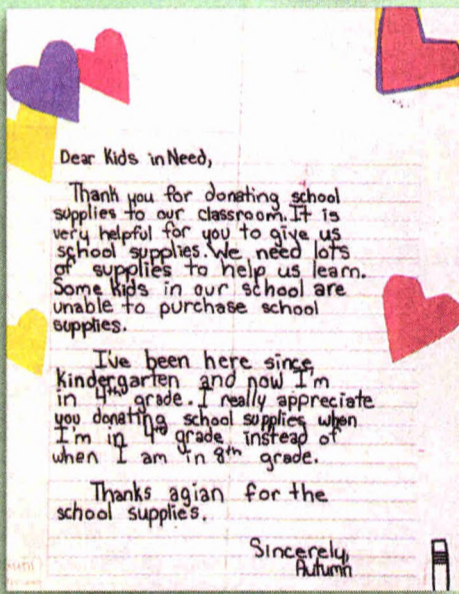 Dear Kids in Need,
Thank you for donating school
supplies to our classroom. It is
very helpful for you to give us
school supplies. We need lots
of supplies to help us learn.
Some kids in our school are
unable to purchase school
supplies.
I've been here since
kindergarten and now I'm
in 4th grade. I really appreciate
you donating school supplies when
I'm in 4th grade instead of
when I am in 8th grade.
Thanks agian for the
school supplies.
Sincerely,
Autumn